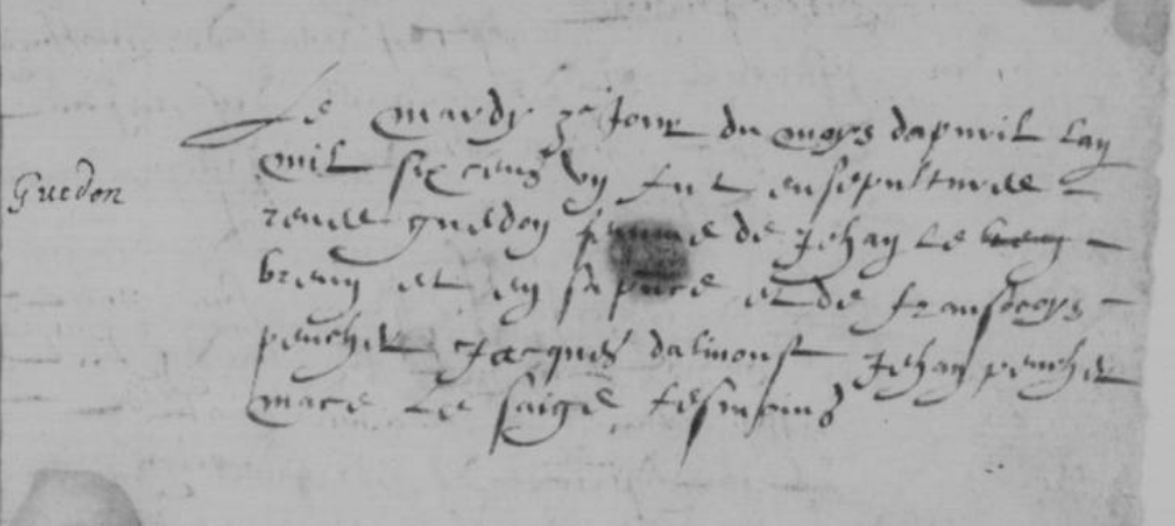 Guedon
Le mardy 3e Jour du moys dapvril lan
mil six cens vij fut ensepulturee
renee guedon femme de Jehan Le
breny et en sa prnce et de fransooys
peuchet Jacques dalmonst Jehan peuchet
mace Le saige tesmoins